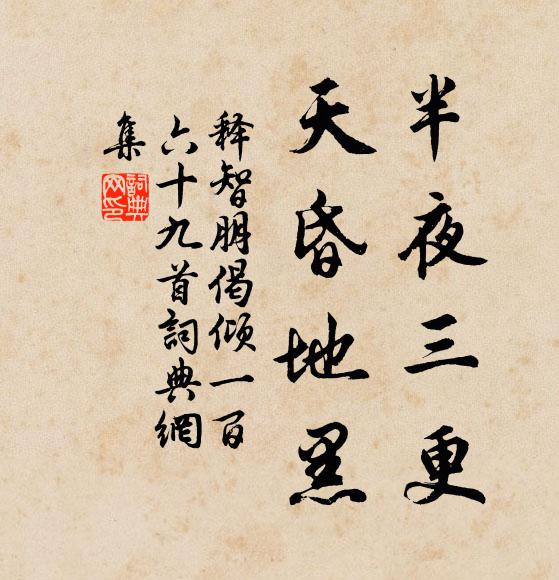 半夜三更
天昏地黑
释智朋偈倾一百
六十九首詞典網
集
詞典網印